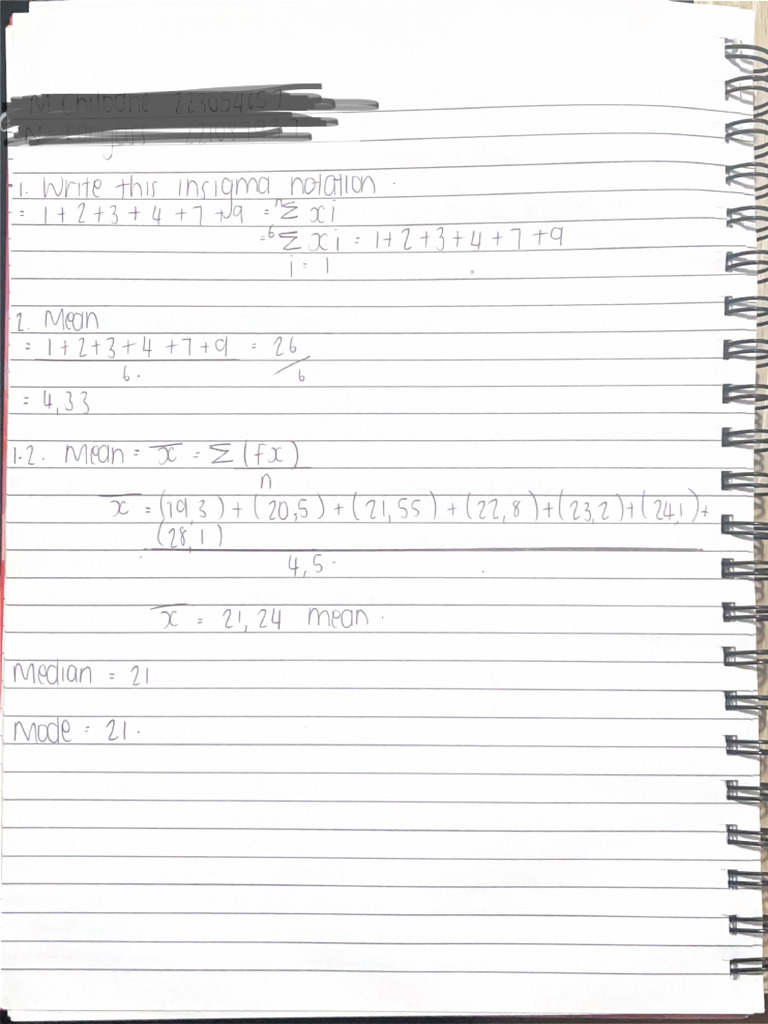 1. Write this insigma notation.
= 1+2+3+4+7+9 = n Σ xi
= 6 Σ xi = 1+2+3+4+7+9
i = 1
2. Mean
= 1+2+3+4+7+9 = 26
6. / 6
= 4,33
1.2. Mean = x̄ = Σ (fx)
n
x̄ = (19,3) + (20,5) + (21,55) + (22,8) + (23,2) + (24,1) +
(28,1)
4,5.
x̄ = 21,24 mean.
Median = 21
Mode = 21.